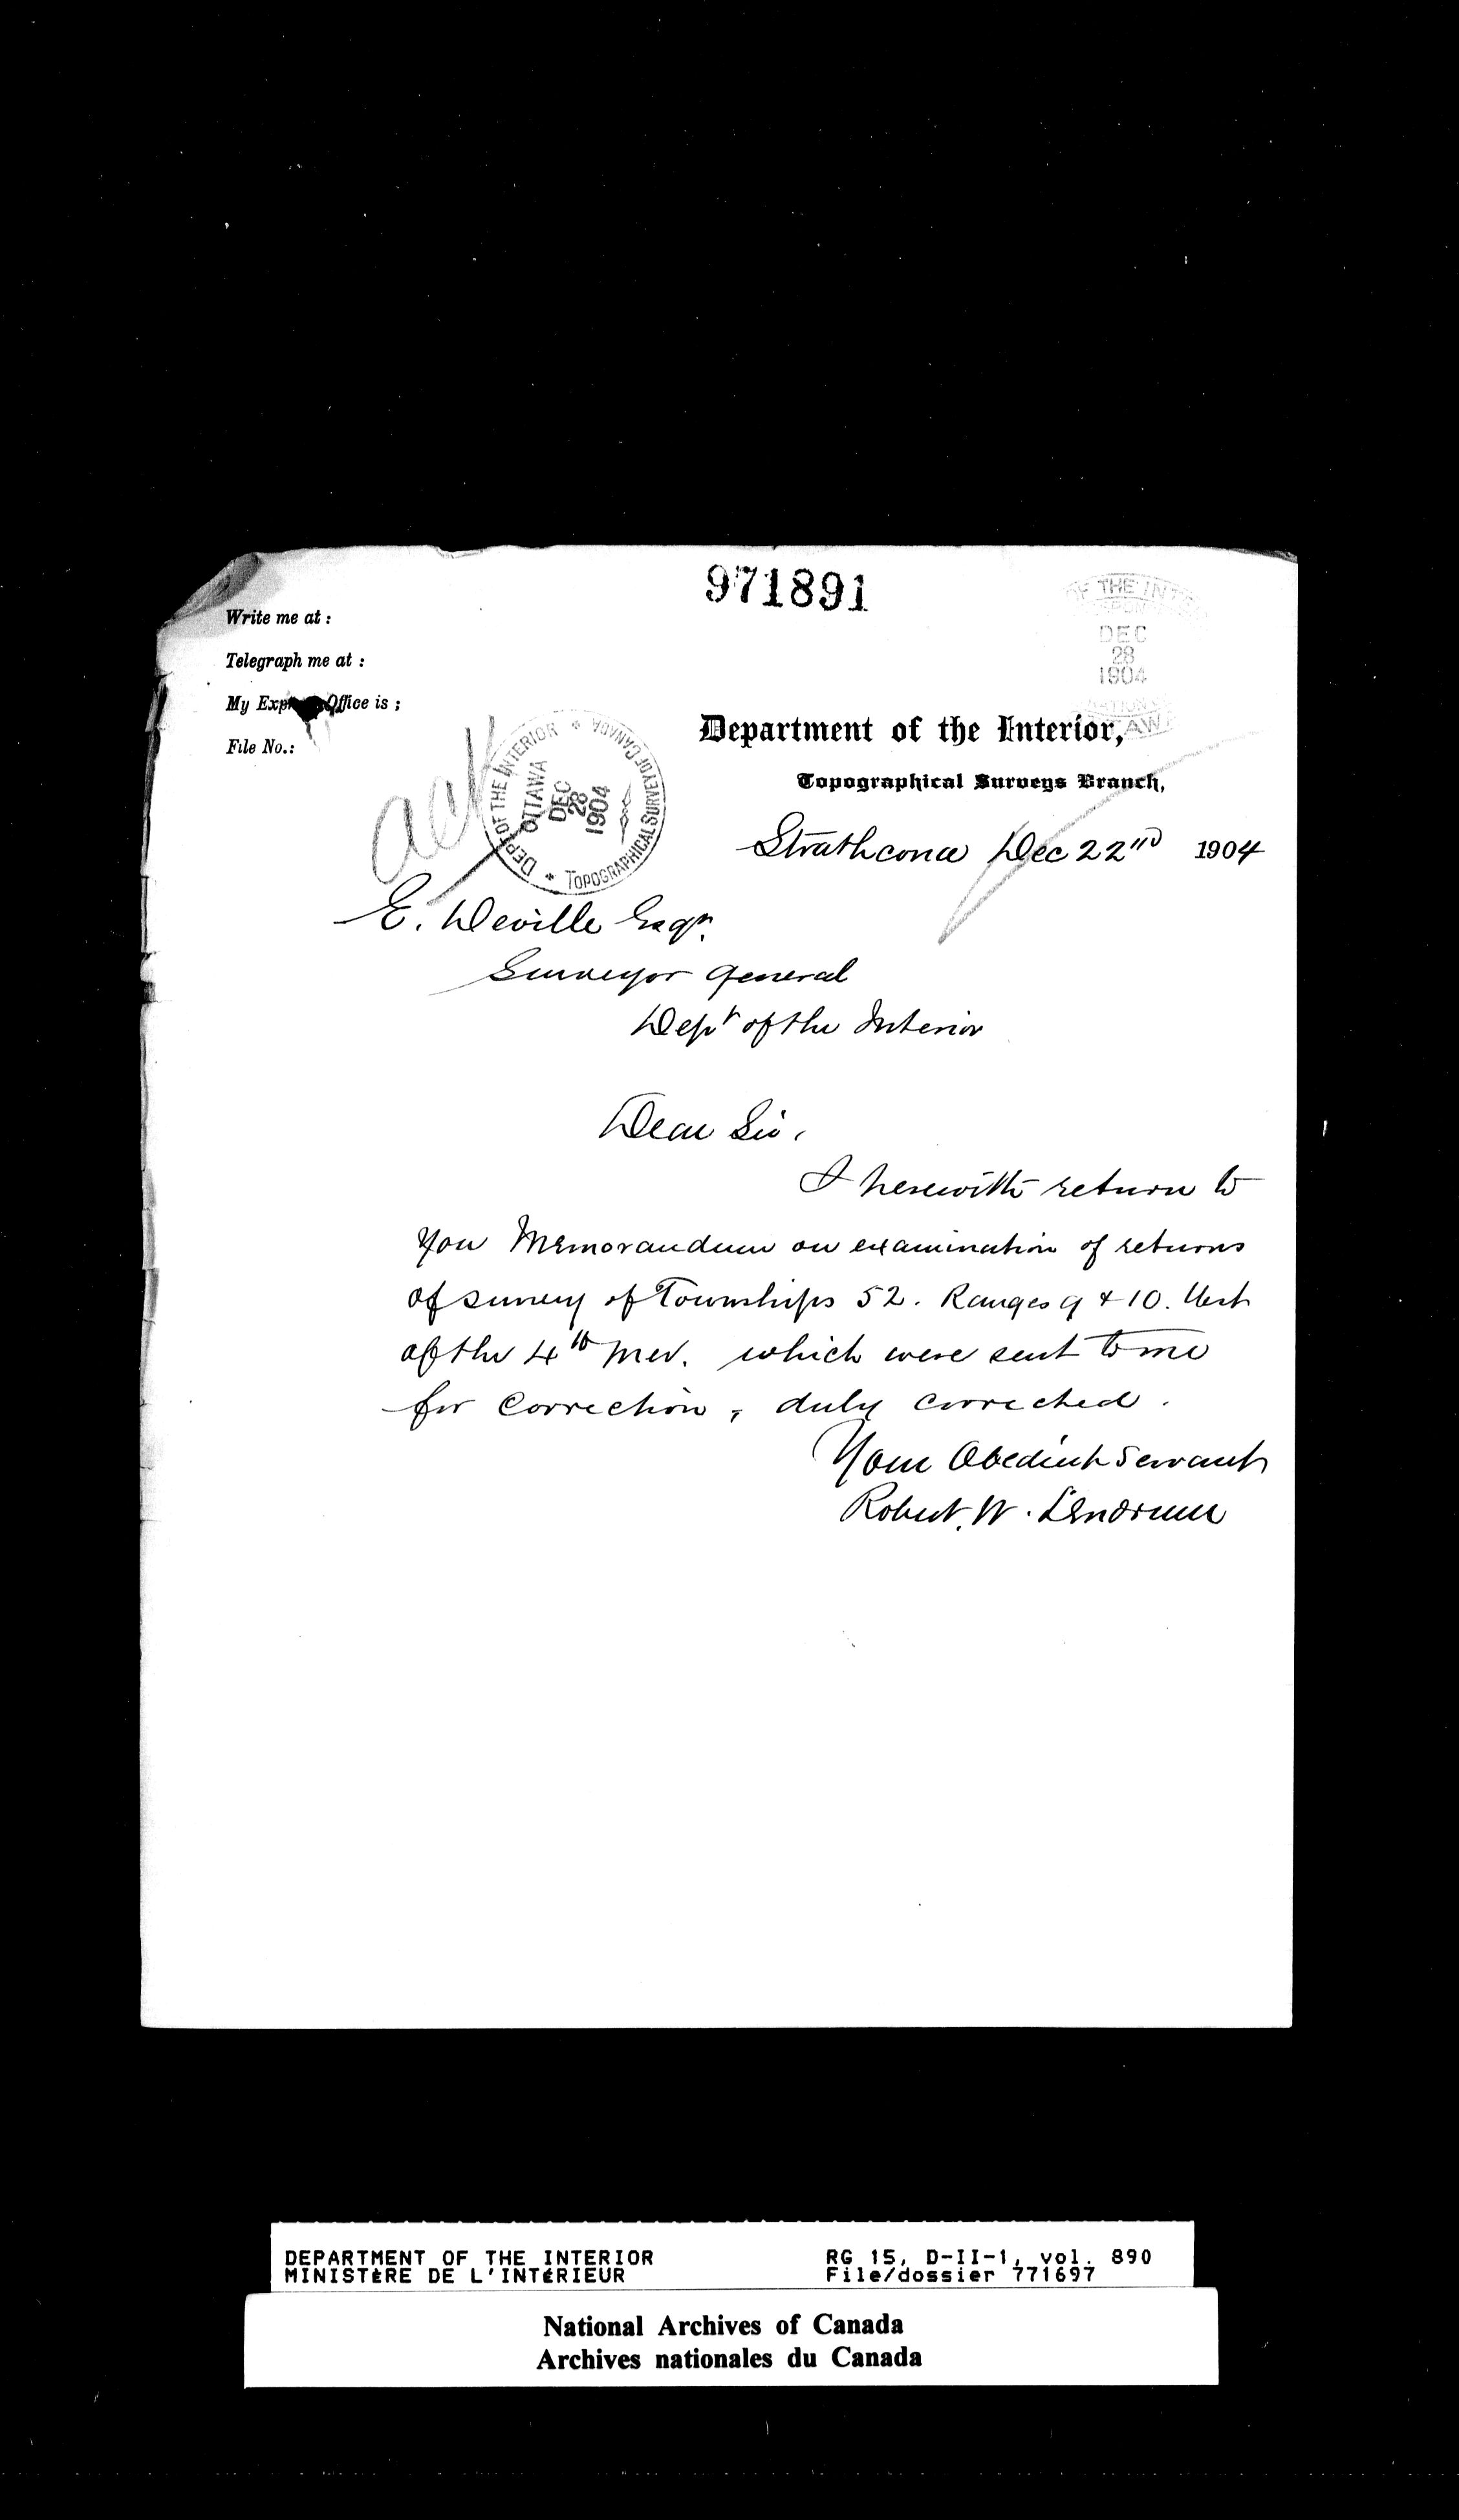 971891
Write me at :
Telegraph me at :
My Exp Office is ;
File No.:
OF THE INTE
DEC
28
1904
Department of the Interior,
Topographical Surveys Branch,
ack
DEPT OF THE INTERIOR * TOPOGRAPHICAL SURVEY OF CANADA *
OTTAWA
DEC
28
1904
Strathcona Dec 22nd 1904
E. Deville Esqr.
Surveyor General
Dept of the Interior
Dear Sir,
I herewith return to
you Memorandum on examination of returns
of survey of Townships 52. Ranges 9 & 10. West
of the 4th Mer. which were sent to me
for correction, duly corrected.
Your Obedient Servant
Robert. W. Lendrum
DEPARTMENT OF THE INTERIOR RG 15, D-II-1, vol. 890
MINISTÈRE DE L'INTÉRIEUR File/dossier 771697
National Archives of Canada
Archives nationales du Canada